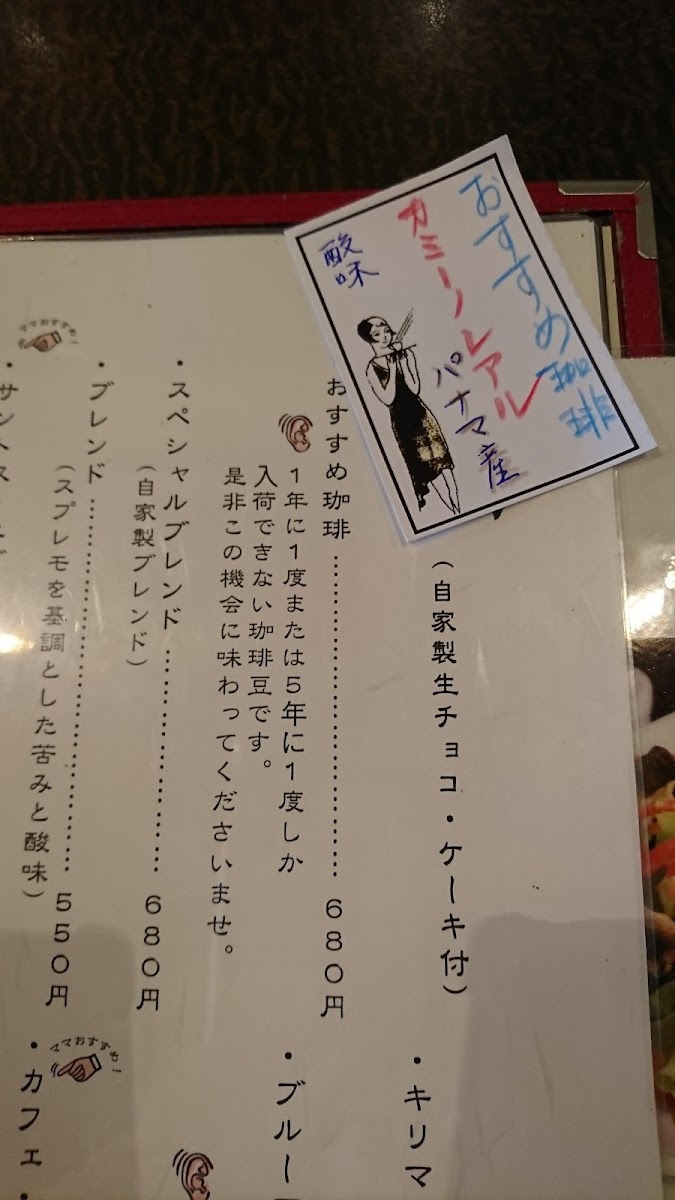 おすすめ珈琲
カミーノレアル
パナマ産
酸味
(自家製生チョコ・ケーキ付)
おすすめ珈琲……………………680円
1年に1度または5年に1度しか
入荷できない珈琲豆です。
是非この機会に味わってくださいませ。
・スペシャルブレンド……………680円
(自家製ブレンド)
・ブレンド……………………550円
(スプレモを基調とした苦みと酸味)
ママおすすめ!
・キリマ
・ブルー
ママおすすめ!
・カフェ・